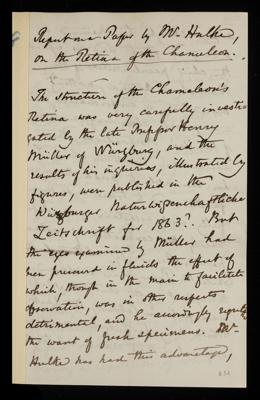 Report on a Paper by Mr Hulke,
on the Retina of the Chameleon.
The structure of the Chameleon's
Retina was very carefully investi-
gated by the late Professor Henry
Müller of Würzburg, and the
results of his inquiries, illustrated by
figures, were published in the
Würzburger Naturwissenschaftliche
Zeitschrift for 1863?. But
the eyes examined by Müller had
been preserved in fluids the effect of
which, though in the main to facilitate
observation, was in other respects
detrimental, and he accordingly regrets
the want of fresh specimens. Mr
Hulke has had this advantage,